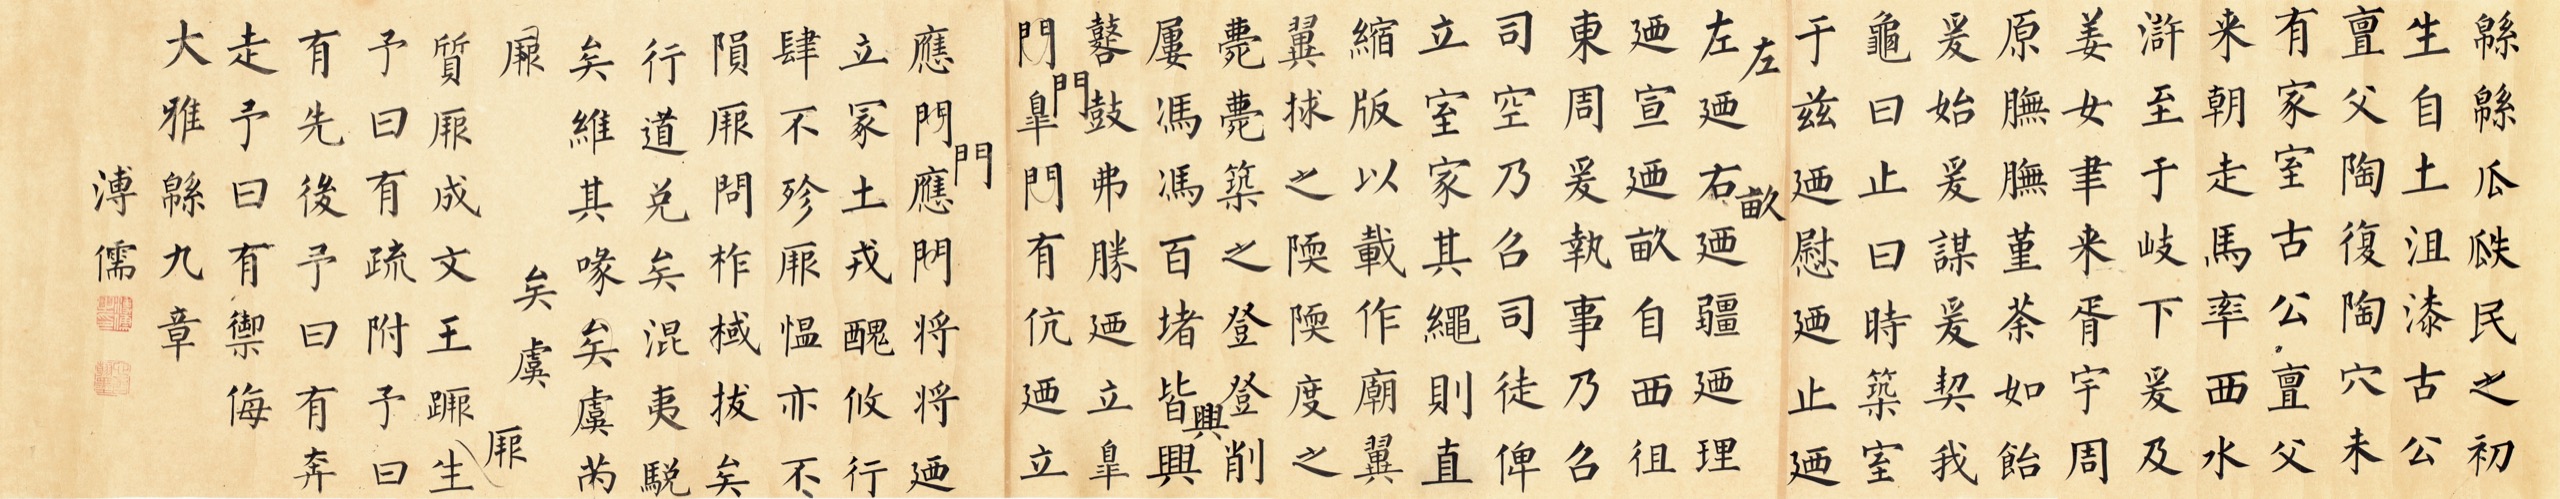 緜緜瓜瓞民之初
生自土沮漆古公
亶父陶復陶穴未
有家室古公亶父
来朝走馬率西水
滸至于岐下爰及
姜女聿来胥宇周
原膴膴堇荼如飴
爰始爰謀爰契我
龜曰止曰時築室
于兹廼慰廼止廼
左
畝
左廼右廼疆廼理
廼宣廼畝自西徂
東周爰執事乃召
司空乃召司徒俾
立室家其繩則直
縮版以載作廟翼
翼捄之陾陾度之
薨薨築之登登削
興
屢馮馮百堵皆興
鼛鼓弗勝廼立皐
門
門皐門有伉廼立
門
應門應門将将廼
立冢土戎醜攸行
肆不殄厥愠亦不
隕厥問柞棫拔矣
行道兑矣混夷駾
矣維其喙矣虞芮
厥
矣
虞
厥
質厥成文王蹶生
予曰有疏附予曰
有先後予曰有奔
走予曰有禦侮
大雅緜九章
溥儒